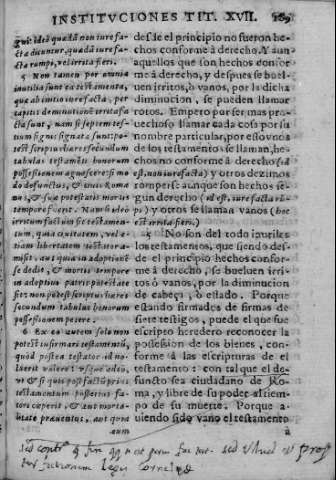 INSTITVCIONES TIT. XVII. 189
quit ideò quædã non iure fa-
cta dicuntur, quædã iure fa-
cta rumpi, vel irrita fieri.
5 Non tamen per omnia
inutilia sunt ea testamenta,
quæ ab initio iure facta, per
capitis deminutionem irrita
facta sunt, nam si septem tes-
tium signis signata sunt: po-
test scriptus hæres secundum
tabulas testamenti bonorum
possessionem agnoscere si mo
do defunctus, & ciuis Roma
nus, & suæ potestatis mortis
tempore fuerit. Nam si ideo
irritum factum sit testamen-
tum, quia ciuitatem, vel e-
tiam libertatem testator a-
misit, aut quia in adoptionẽ
se dedit, & mortis tempore
in adoptiui patris potestate
sit: non potest scriptus hæres,
secundum tabulas bonorum
possessionem petere.
6 Ex eo autem solo non
potest infirmari testamentũ,
quòd postea testator id no-
luerit valere: vsque adeò,
vt & si quis post factũ prius
testamentum, posterius fa-
cere cœperit, & aut morta-
litate præuentus, aut quia
eum
desde el principio no fueron he-
chos conforme à derecho. Y aun
aquellos que son hechos confor-
me à derecho, y despues se buel-
uen irritos, ò vanos, por la dicha
diminucion, se pueden llamar
rotos. Empero por ser mas pro-
uechoso llamar cada cosa por su
nombre particular, por esso vnos
de los testamentos se llaman, he-
chos no conforme à derecho (id
est, non iure facta) y otros dezimos
romperse aunque son hechos se-
gun derecho (id est, iure facta rũ
pi) y otros se llaman vanos (hoc
est irrita fieri.)
5 No son del todo inutiles
los testamentos, que siendo des-
de el principio hechos confor-
me à derecho, se bueluen irri-
tos ò vanos, por la diminucion
de cabeça, ò estado. Porque
estando firmados de firmas de
siete testigos, puede el que fue
escripto heredero reconocer la
possession de los bienes, con-
forme à las escripturas de el
testamento: con tal que el de-
functo sea ciudadano de Ro-
ma, y libre de su poder al tiem-
po de su muerte. Porque a-
uiendo sido vano el testamento
à